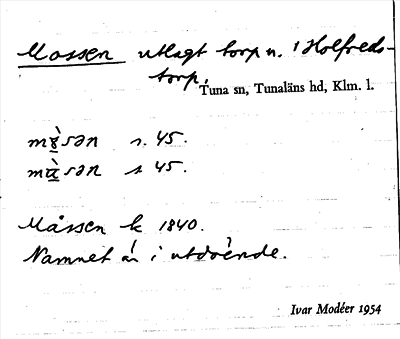 Mossen utlagt torp u. Holfreds-
torp.
Tuna sn, Tunaläns hd, Klm. l.
s. 45.
s 45.
Måssen k 1840.
Namnet är i utdöende.
Ivar Modéer 1954